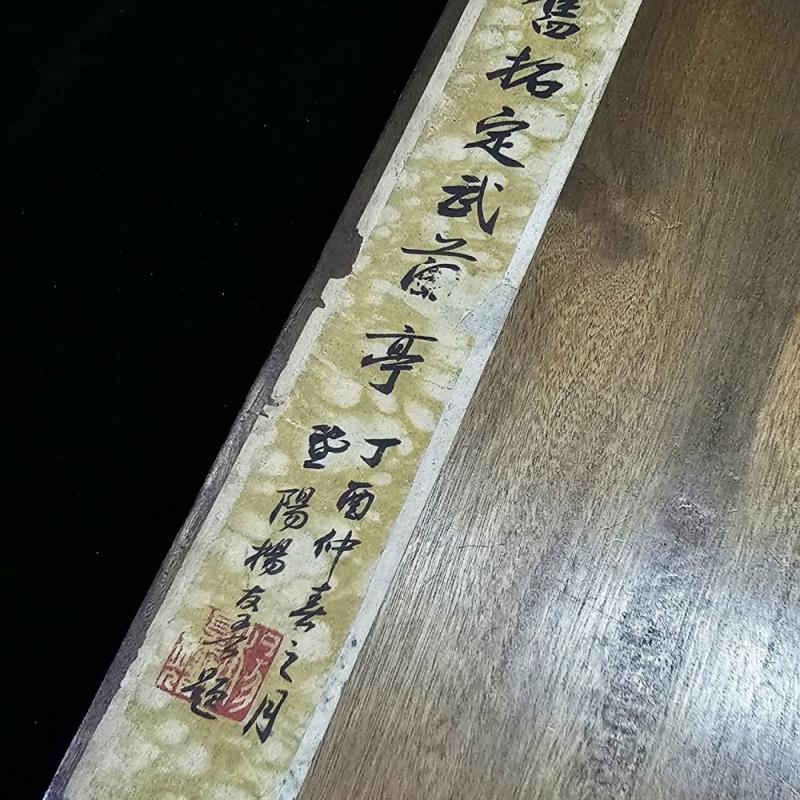 舊拓定武蘭亭
丁酉仲春之月
暨陽楊友吾題